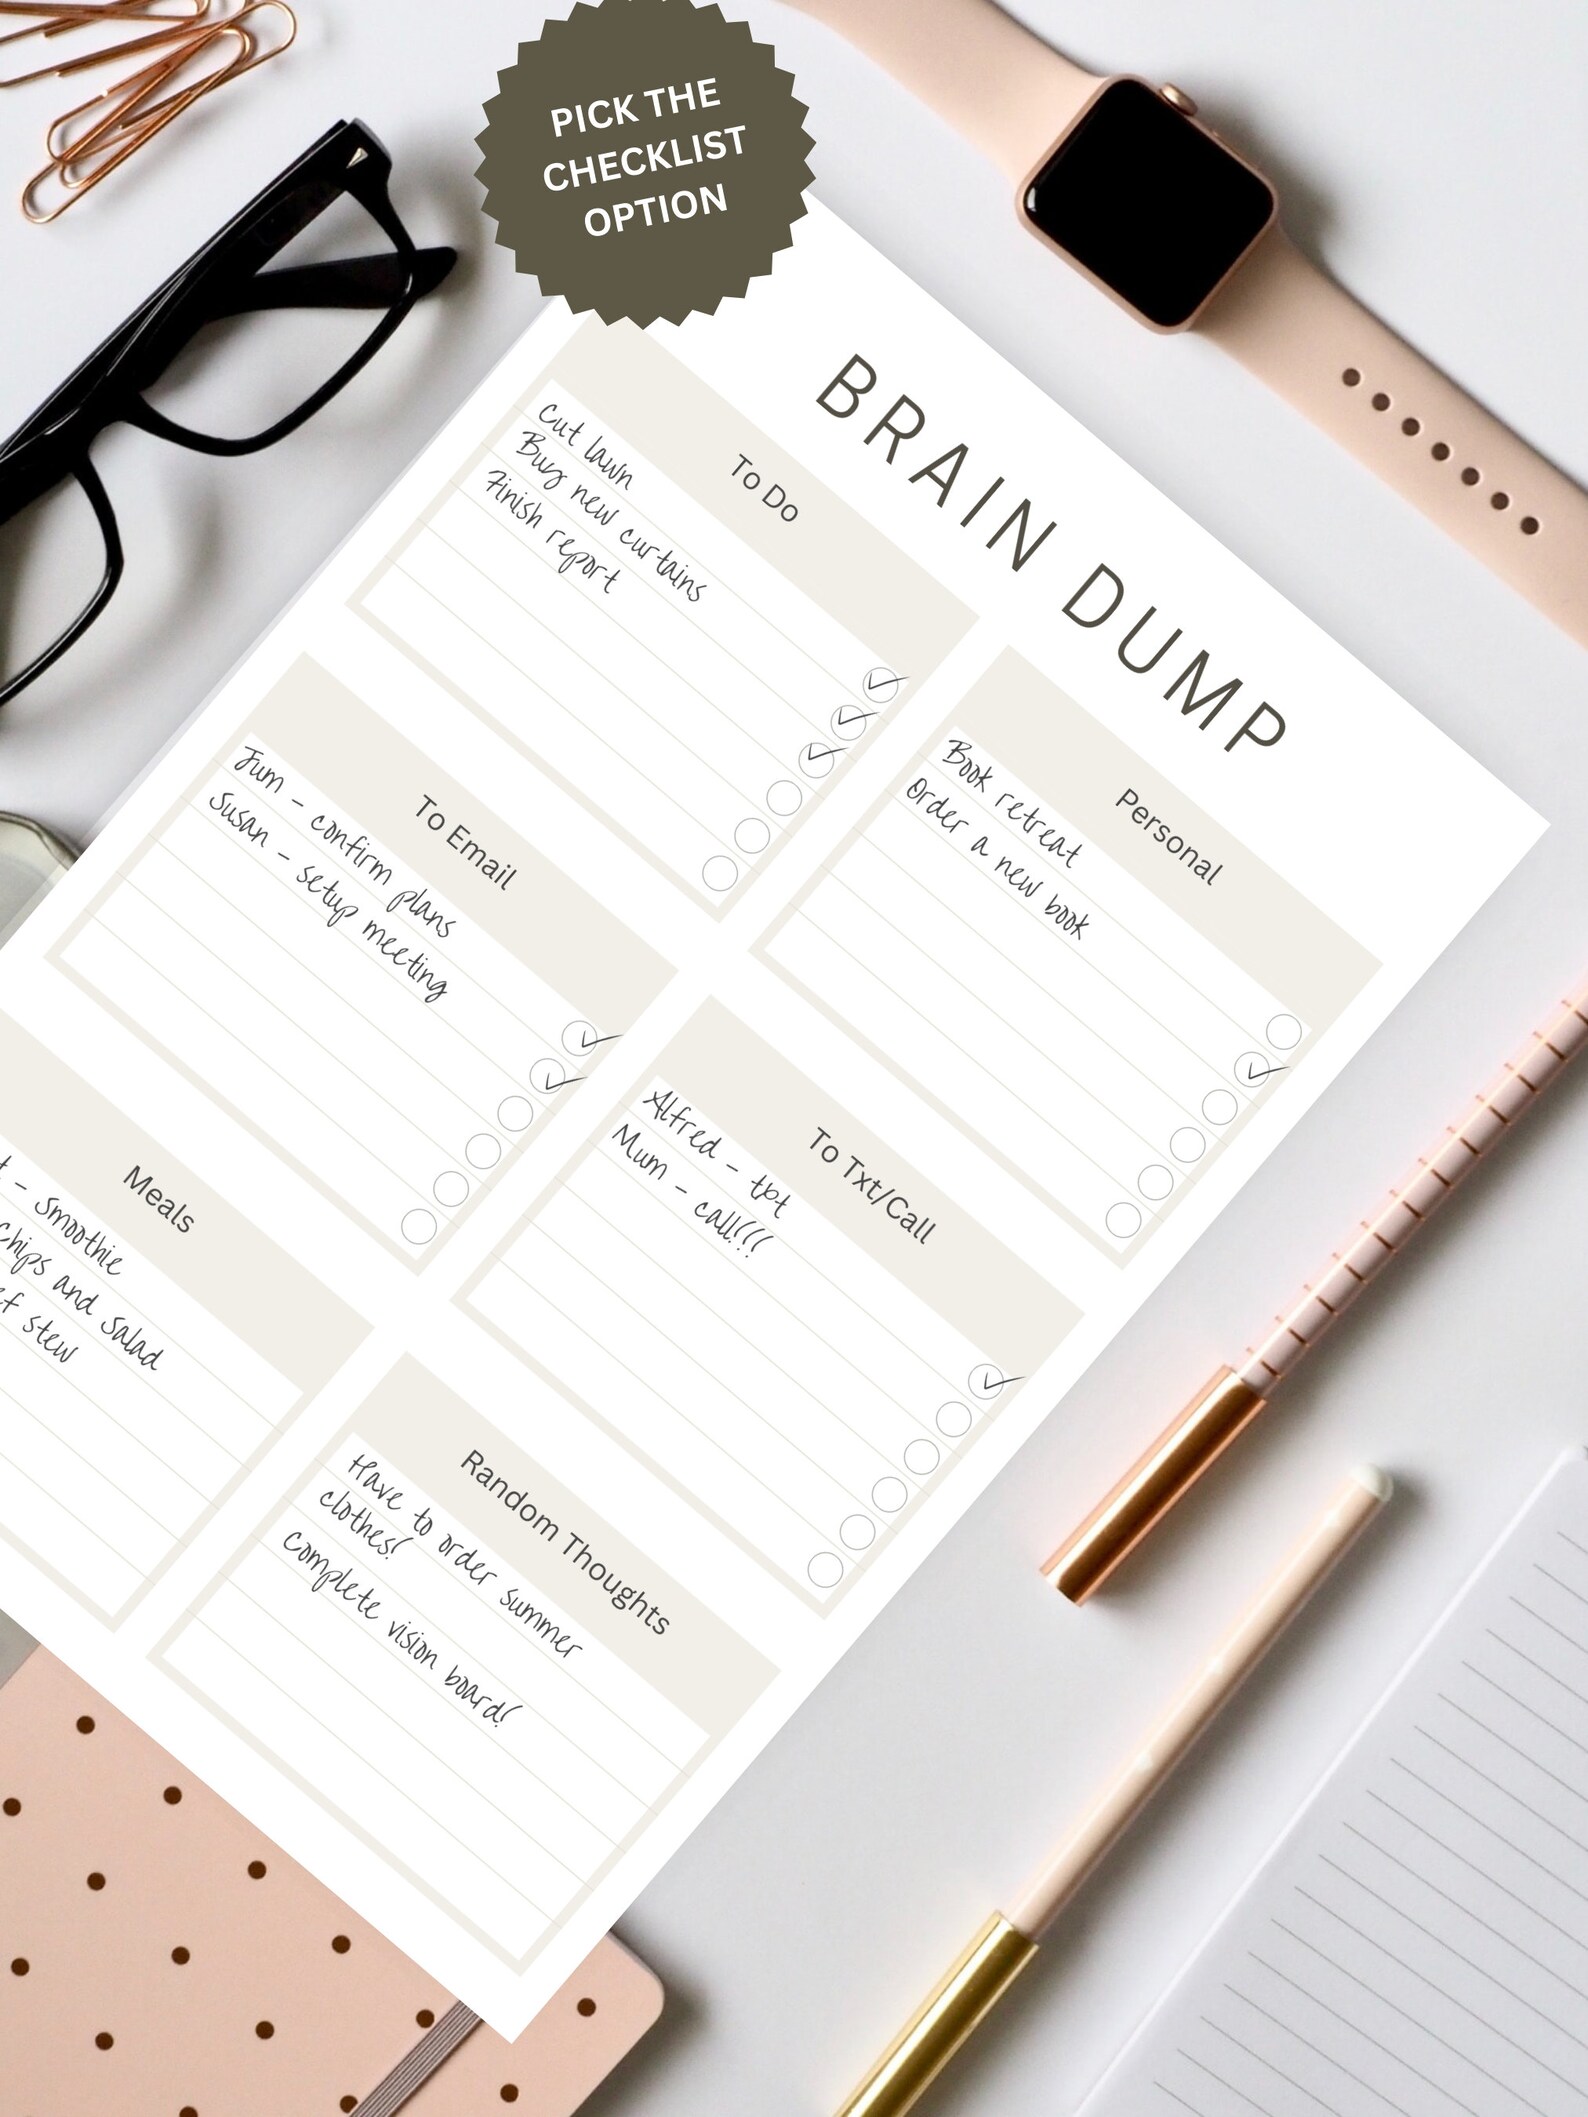 PICK THE
CHECKLIST
OPTION
BRAIN DUMP
To Do
Cut lawn
Buy new curtains
Finish report
Personal
Book retreat
Order a new book
To Email
Jum - confirm plans
Susan - setup meeting
To Txt/Call
Alfred - txt
Mum - call!!!
Meals
- smoothie
Chips and salad
stew
Random Thoughts
Have to order summer
clothes!
Complete vision board!